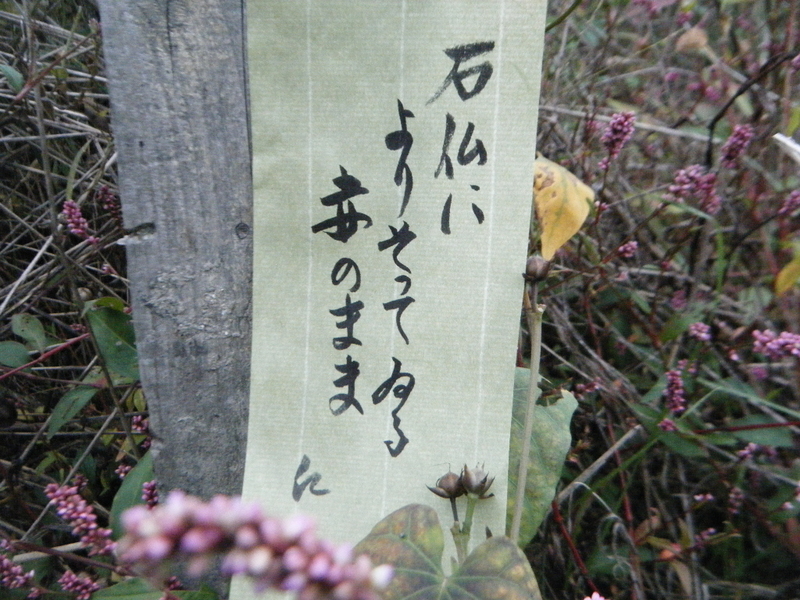 石仏に
よりそってゐる
赤のまま